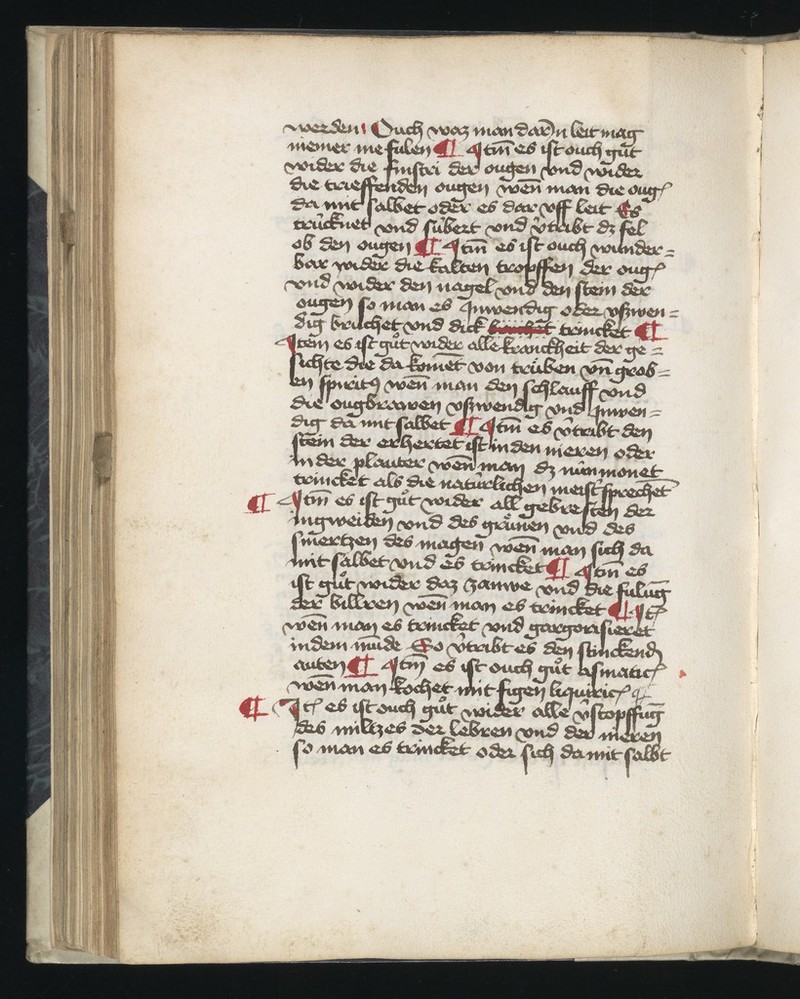 werden Ouch waz man dar jn leit mag
niemer me fulen ¶ Jtm̄ es ist ouch gůt
wider die finstri der ougen vnd wider
die trieffenden ougen wen̄ man die oug
da mit salbet oder es dar vff leit Es
trücknet vnd sübert vnd v̄tribt dz fel
ob den ougen ¶ Jtm̄ es ist ouch wunder=
bar wider die kalten tropffen der oug
vnd wider den nagel vnd den stein der
ougen so man es Jnwendig oder vßwen=
dig bruchet vnd dick trincket ¶
Jtem es ist gůt wider alle kranckheit der ge=
sichte die da komēt von trüben vn̄ grob=
en spiritꝰ wen̄ man den schlauff vnd
die ougbrawen vßwendig vnd Jnwen=
dig da mit salbet ¶ Jtm̄ es v̄tribt den
stein der erhertet ist in den nieren oder
in der plauter wen̄ man dz nün monet
trincket als die natürlichen meist sprechēt
¶ Jtm̄ es ist gůt wider all gebresten der
ingweiden vnd des gränen vnd des
smertzen des magen wen̄ man sich da
mit salbet vnd es trincket ¶ Jtm̄ es
ist gůt wider daz zanwe vnd die fulūg
der billren wen̄ man es trincket ¶ Jt
wen̄ man es trincket vnd gargorisieret
in dem mūde So v̄tribt es den stinckend
auten ¶ Jtm̄ es ist ouch gůt asmatic
wen̄ man kochet mit figen liquiric
¶ Jt es ist ouch gůt wider alle v̄stopffūg
des miltzes der lebren vnd der nieren
so man es trincket oder sich da mit salbt